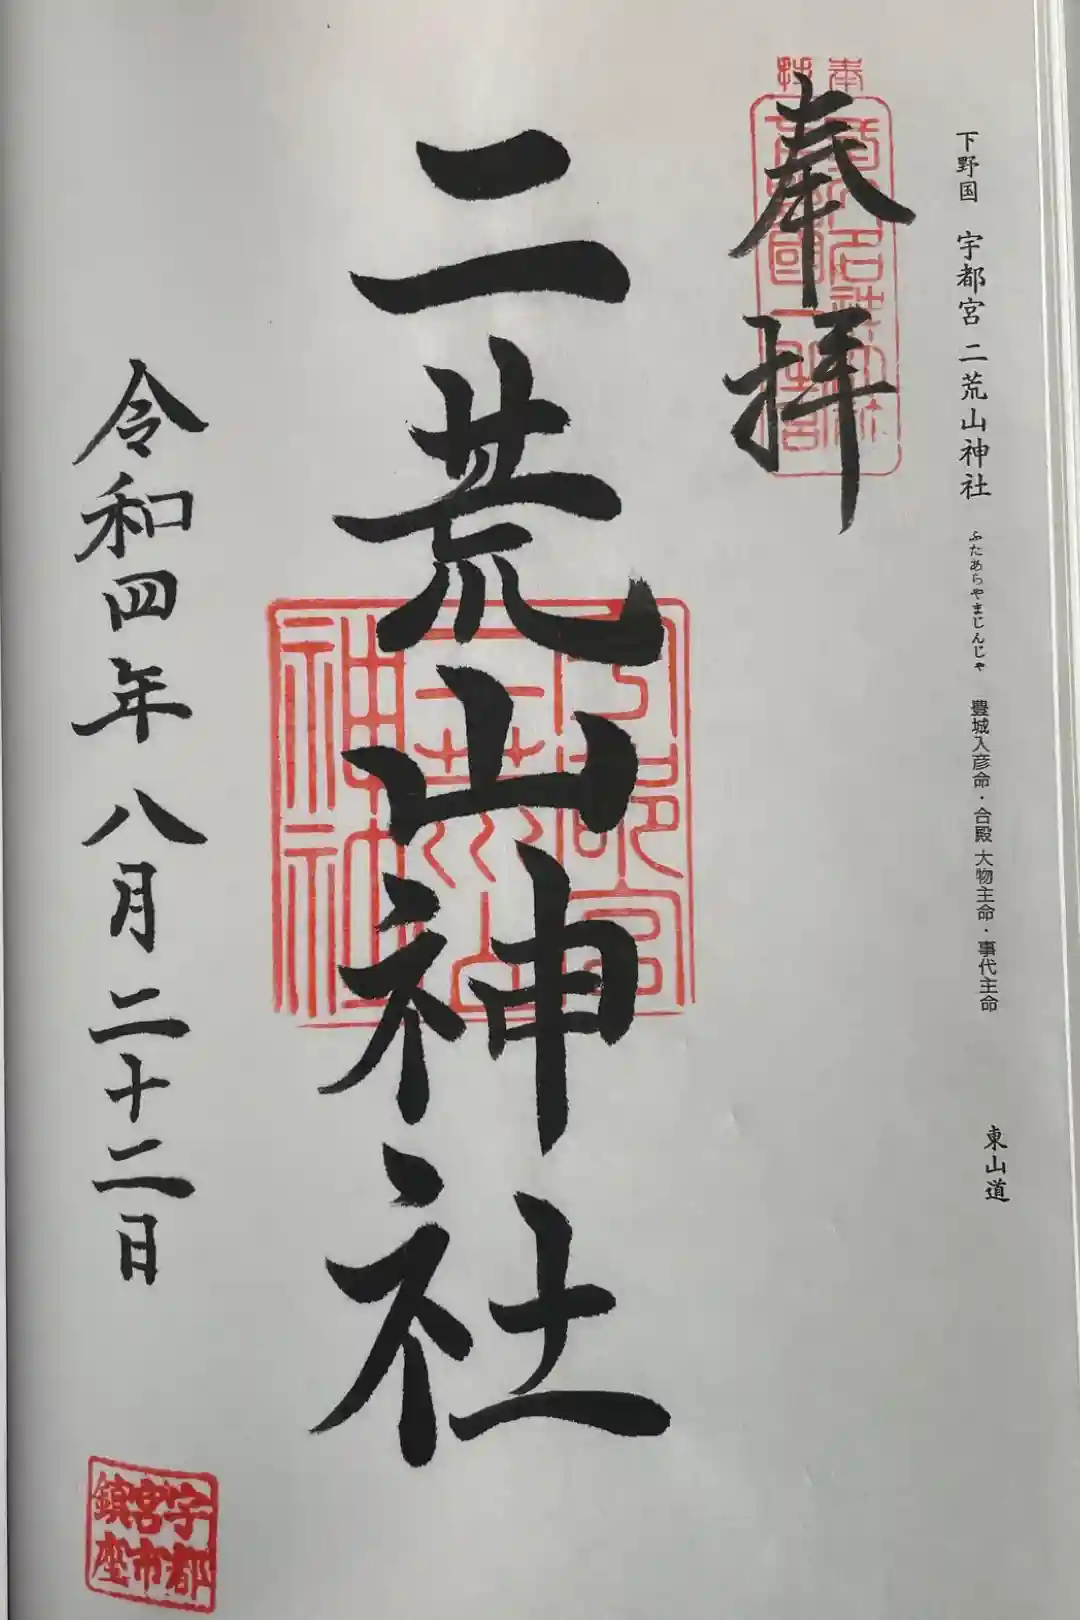 下野国 宇都宮 二荒山神社 ふたあらやまじんじゃ 豊城入彦命・合殿 大物主命・事代主命 東山道
奉拝
二荒山神社
令和四年八月二十二日
宇都宮二荒山神社
宇都宮市鎮座